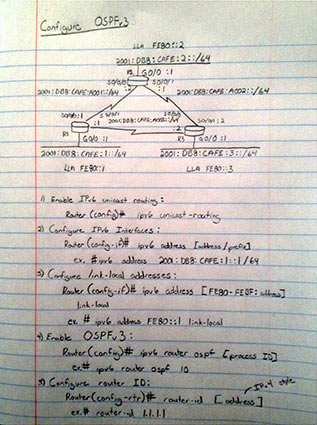 Configure OSPFv3
LLA FE80::2
2001:DB8:CAFE:2::/64
R2 G0/0 :1
S0/0/0 :2 S0/0/1 :1
2001:DB8:CAFE:A001::/64 2001:DB8:CAFE:A002::/64
S0/0/0 :1 S0/0/1 S0/0/0
2001:DB8:CAFE:A003::/64 S0/0/1 :2
:1 :2
R1 G0/0 :1 R3 G0/0 :1
2001:DB8:CAFE:1::/64 2001:DB8:CAFE:3::/64
LLA FE80::1 LLA FE80::3
1) Enable IPv6 unicast routing:
Router(config)# ipv6 unicast-routing
2) Configure IPv6 Interfaces:
Router(config-if)# ipv6 address [address/prefix]
ex. # ipv6 address 2001:DB8:CAFE:1::1/64
3) Configure link-local addresses:
Router(config-if)# ipv6 address [FE80-FEBF: address]
link-local
ex. # ipv6 address FE80::1 link-local
4) Enable OSPFv3:
Router(config)# ipv6 router ospf [process ID]
ex.# ipv6 router ospf 10
5) Configure router ID: IPv4 style
Router(config-rtr)# router-id [address]
ex.# router-id 1.1.1.1